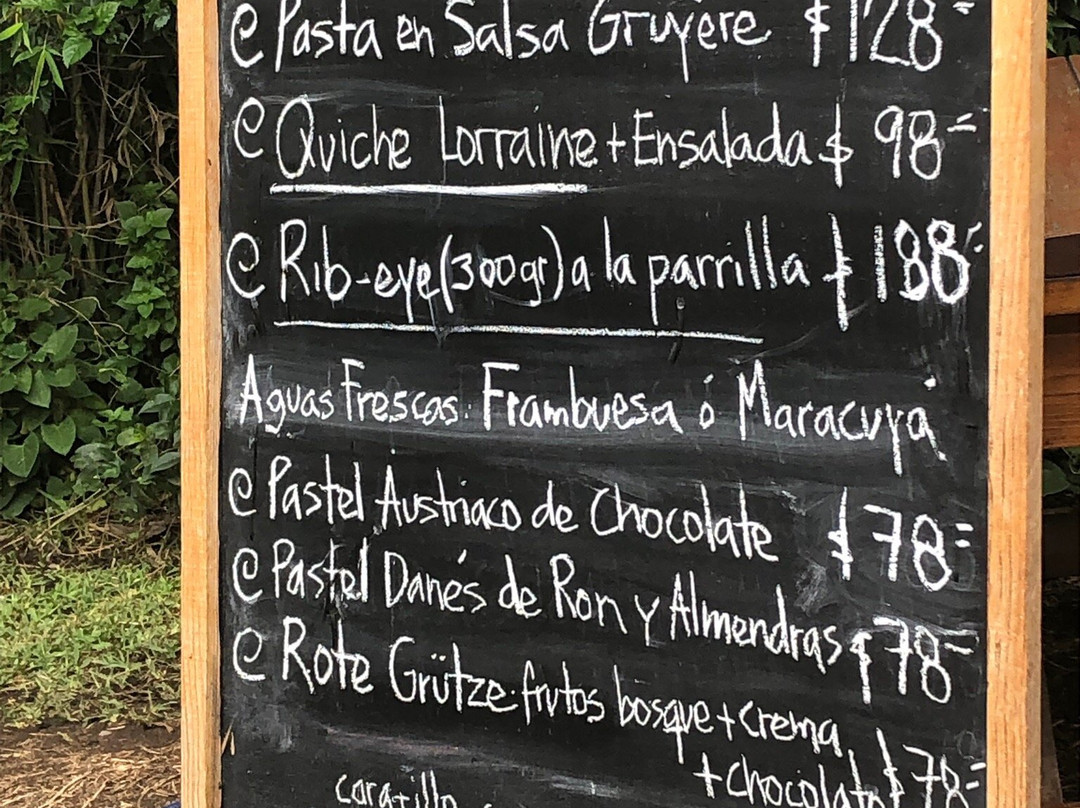 @ Pasta en Salsa Gruyere $128=
@ Quiche Lorraine + Ensalada $ 98=
@ Rib-eye (300gr) a la parrilla $188=
Aguas Frescas: Frambuesa ó Maracuyá
@ Pastel Austriaco de Chocolate $78=
@ Pastel Danés de Ron y Almendras $78=
@ Rote Grütze: frutos bosque + crema
+ chocolate $78=